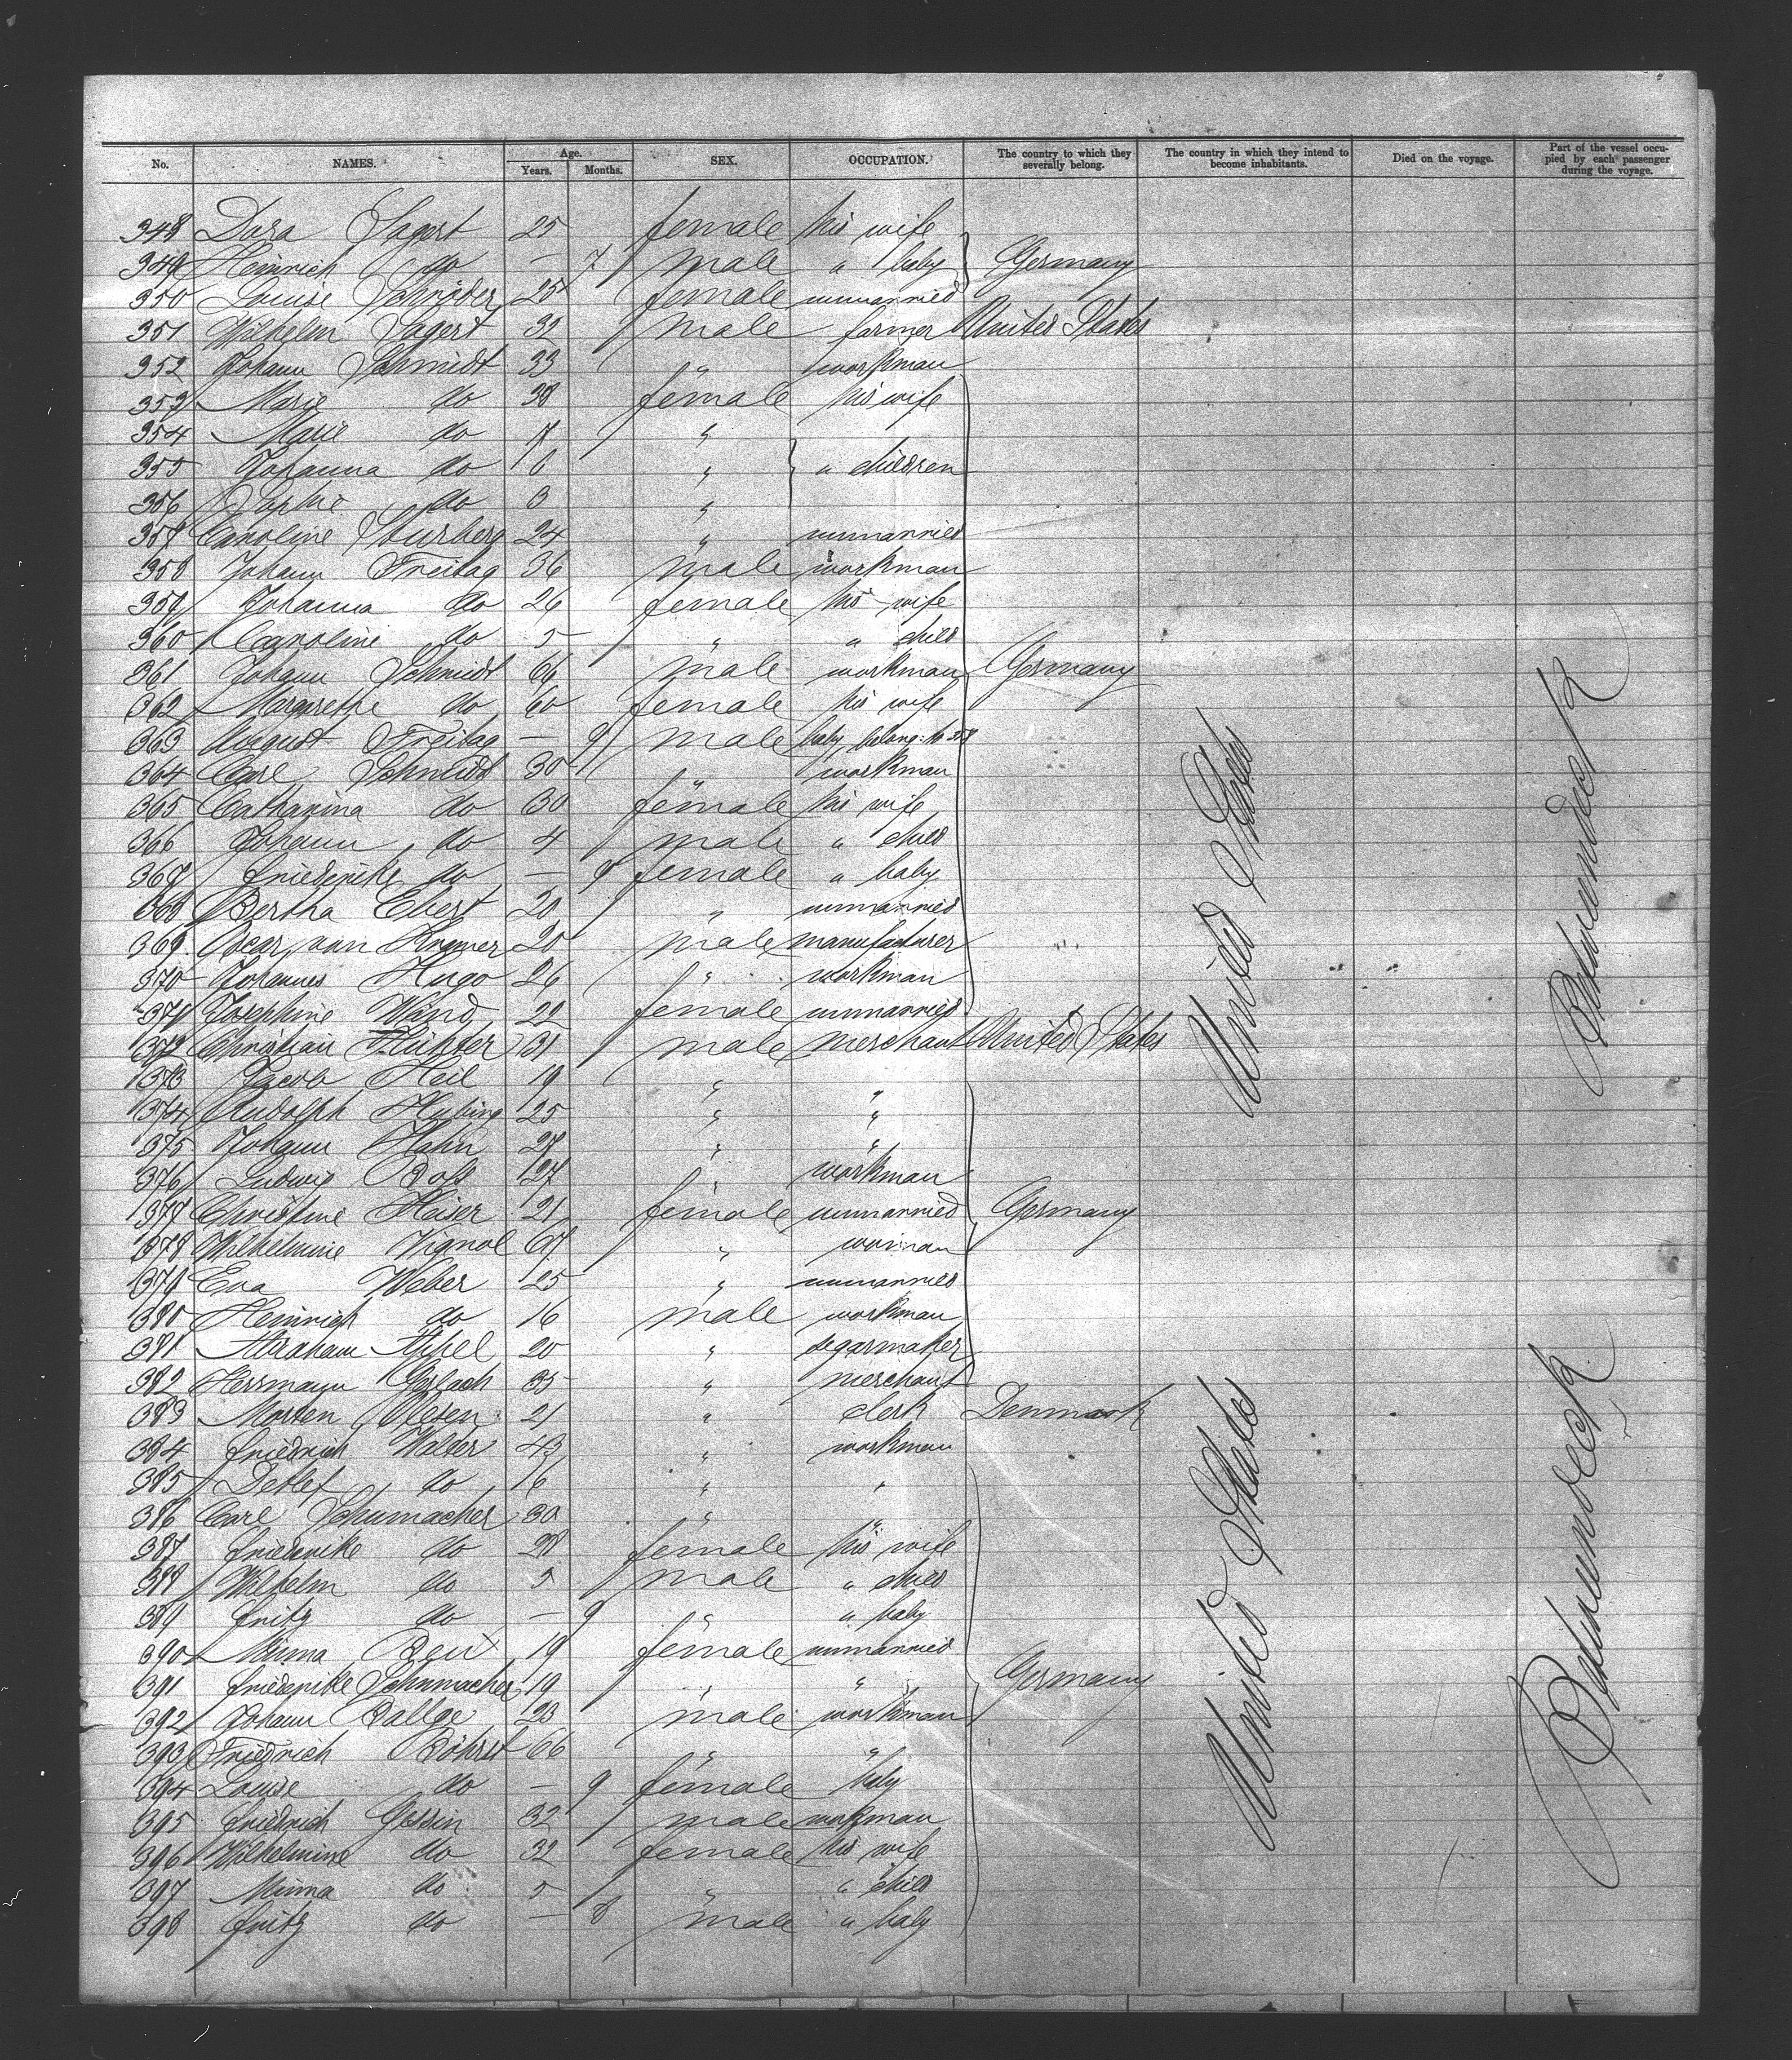 No. NAMES. Age. Years. Months. SEX. OCCUPATION. The country to which they severally belong. The country in which they intend to become inhabitants. Died on the voyage. Part of the vessel occupied by each passenger during the voyage.
348 Dora Sagert 25 female his wife
349 Heinrich do — 7 male " baby Germany
350 Louise Schröder 25 female unmarried
351 Wilhelm Sagert 32 male farmer United States
352 Johann Schmidt 33 " workman
353 Marie do 38 female his wife
354 Marie do 7 "
355 Johanna do 6 " " children
356 Sophie do 3 "
357 Caroline 24 " unmarried
358 Johann Freitag 36 male workman
359 Johanna do 26 female his wife
360 Caroline do 5 " " child
361 Johann Schmidt 66 male workman Germany
362 Margarethe do 60 female his wife
363 August Freitag — 9 male baby belong. to
364 Carl Schmidt 30 " workman
365 Catharina do 30 female his wife
366 Johann do 4 male " child
367 Friederike do — 9 female " baby
368 Bertha Ebert 20 " unmarried
369 Oscar van 20 male manufacturer
370 Johannes Hugo 26 " workman
371 Josephine Wänd 22 female unmarried
372 Christian Richter 31 male merchant United States
373 Jacob Heil 19 " "
374 Rudolph 25 " "
375 Johann Hahn 27 " "
376 Ludwig 27 " workman
377 Christine Kaiser 21 female unmarried Germany
378 Wilhelmine Vignol 67 " woman
379 Eva Weber 25 " unmarried
380 Heinrich do 16 male workman
381 Abraham Appel 20 " segarmaker
382 Herrmann Gerlach 35 " merchant
383 Morten Olesen 21 " clerk Denmark
384 Friedrich Walter 43 " workman
385 Detlef do 16 " "
386 Carl Schumacher 30 " "
387 Friederike do 28 female his wife
388 Wilhelm do 5 male " child
389 Fritz do — 9 " " baby
390 Minna 19 female unmarried
391 Friederike Schumacher 19 " " Germany
392 Johann 23 male workman
393 Friedrich Böhrst 66 " "
394 Louise do — 9 female baby
395 Friedrich Gessin 32 male workman
396 Wilhelmine do 32 female his wife
397 Minna do 5 " " child
398 Fritz do — 8 male " baby
United States
Betweendeck
United States
Betweendeck